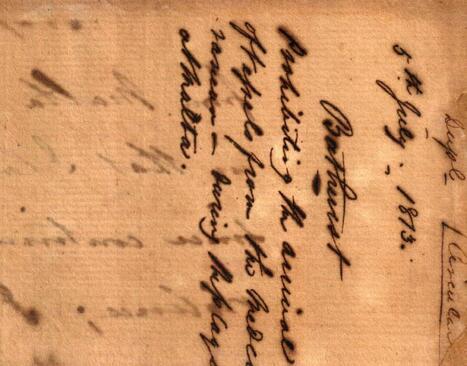 Dupl.
Circular
5th July, 1813.
Bathurst
Prohibiting the arrival
of Vessels from the Medi
ranean during the plague
at Malta.